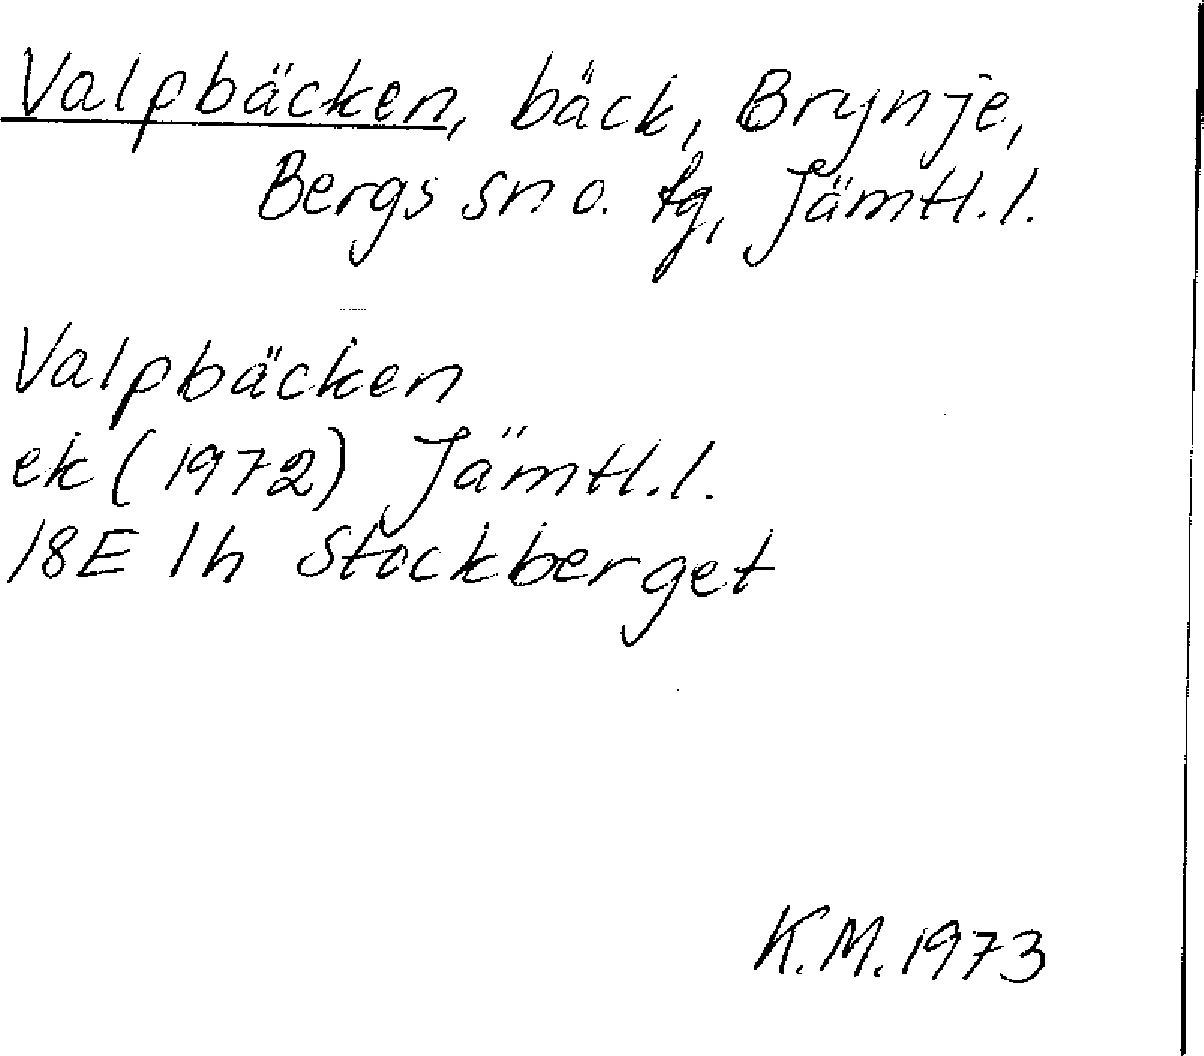 Valpbäcken, bäck, Brynje,
Bergs sn o. tg, Jämtl. l.
Valpbäcken
ek (1972) Jämtl. l.
18E 1h Stockberget
K.M. 1973